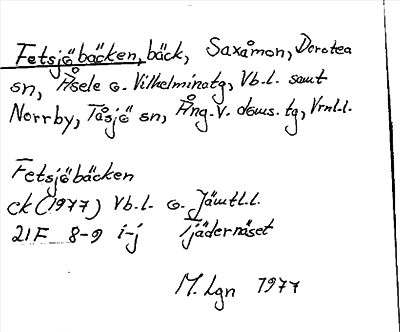 Fetsjöbäcken, bäck, Saxåmon, Dorotea
sn, Åsele o. Vilhelmina tg, Vb.l. samt
Norrby, Tåsjö sn, Ång.v. doms. tg, Vrnl.l.
Fetsjöbäcken
ek (1977) Vb.l. o. Jämtl.l.
21F 8-9 i-j Tjädernäset
M. Lgn 1977